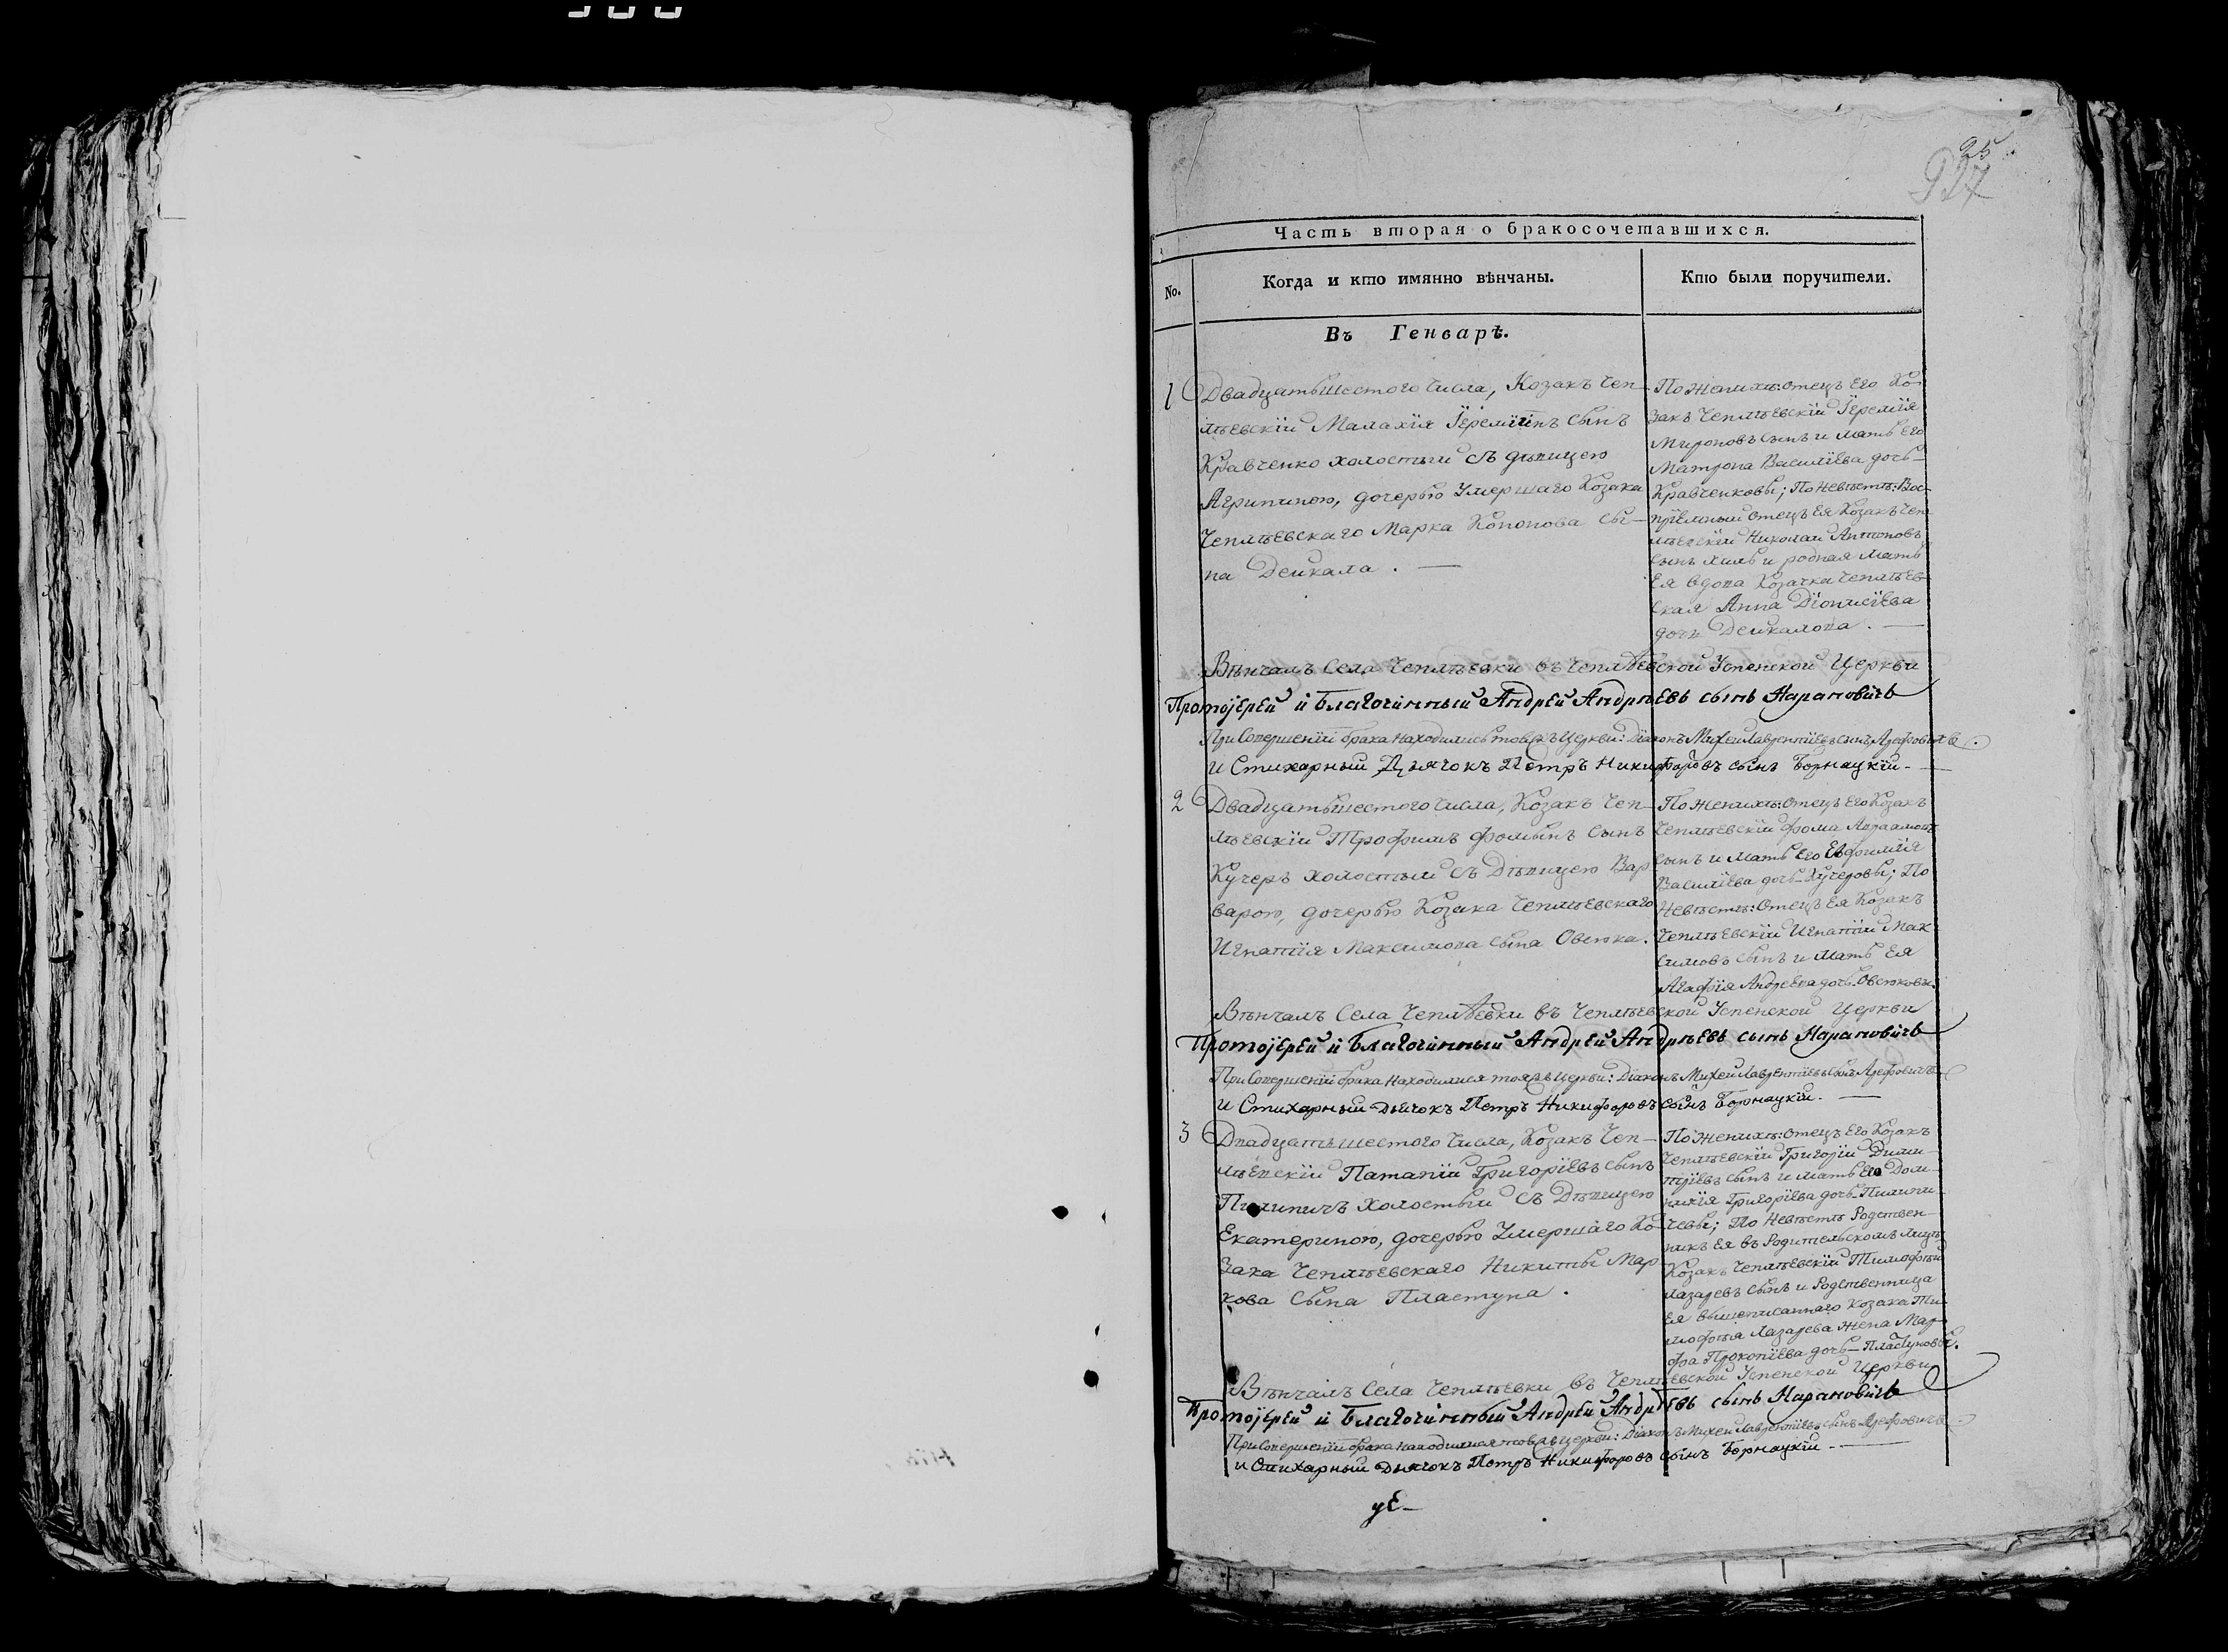 25
927
Часть вторая о бракосочетавшихся.
No.
Когда и кто имянно вѣнчаны.
Кто были поручители.
Въ Генварѣ.
1
Двадцатьшестого Числа, Козакъ Чеп-
лѣевскій Малахія Іереміинъ Сынъ
Кравченко холостый съ дѣвицею
Агрипиною, дочерью Умершаго Козака
Чеплѣевскаго Марка Кононова Сы-
на Дейкала. —
По Женихѣ: Отецъ Его Ко-
закъ Чеплѣевскій Іеремія
Мироновъ Сынъ и Мать Его
Матрона Василіева дочь
Кравченковы; По Невѣстѣ: Вос-
пріемный Отецъ Ея Козакъ Чеп-
лѣевскій Николай Антоновъ
Сынъ и родная Мать
Ея вдова Козачка Чеплѣев-
ская Анна Діонисіева
дочь Дейкалова. —
Вѣнчалъ Села Чеплѣевки въ Чеплѣевской Успенской Церкви
Протоіерей и Благочинный Андрей Андрѣевъ сынъ Нарановичь
При Совершеніи брака Находились тояжъ Церкви: Діаконъ Михей Лаврентіевъ сынъ Арефовичъ.
и Стихарный Дьячокъ Петръ Никифоровъ Сынъ Борнацкій. —
2
Двадцатьшестого Числа, Козакъ Чеп-
лѣевскій Трофимъ Фоминъ Сынъ
Кучеръ холостый съ Дѣвицею Вар-
варою, дочерью Козака Чеплѣевскаго
Игнатія Максимова Сына Овсюка.
По Женихѣ: Отецъ Его Козакъ
Чеплѣевскій Фома Авраамовъ
Сынъ и Мать Его Евфимія
Василіева дочь Кучеровы; По
Невѣстѣ: Отецъ Ея Козакъ
Чеплѣевскій Игнатій Мак-
симовъ Сынъ и Мать Ея
Агафія Андреева дочь Овсюковы.
Вѣнчалъ Села Чеплѣевки въ Чеплѣевской Успенской Церкви
Протоіерей и Благочинный Андрей Андрѣевъ сынъ Нарановичь
При Совершеніи брака Находилися тояжъ Церкви: Діаконъ Михей Лаврентіевъ Сынъ Арефовичъ
и Стихарный Дьячокъ Петръ Никифоровъ Сынъ Борнацкій. —
3
Двадцатьшестого Числа, Козакъ Чеп-
лѣевскій Патапій Григоріевъ Сынъ
Пилипичъ холостый съ Дѣвицею
Екатериною, дочерью Умершаго Ко-
зака Чеплѣевскаго Никиты Мар-
кова Сына Пластуна.
По Женихѣ: Отецъ Его Козакъ
Чеплѣевскій Григорій Дими-
тріевъ Сынъ и Мать Его Дом-
никія Григоріева дочь Пилипи-
чевы; По Невѣстѣ Родствен-
никъ Ея въ Родительскомъ лицѣ
Козакъ Чеплѣевскій Тимофѣй
Лазаревъ Сынъ и Родственница
Ея вышеписаннаго Козака Ти-
мофѣя Лазарева жена Мар-
фа Прокопіева дочь Пластуновы.
Вѣнчалъ Села Чеплѣевки въ Чеплѣевской Успенской Церкви
Протоіерей и Благочинный Андрей Андрѣевъ сынъ Нарановичь
При Совершеніи брака находилися тояжъ Церкви: Діаконъ Михей Лаврентіевъ Сынъ Арефовичъ
и Стихарный Дьячокъ Петръ Никифоровъ Сынъ Борнацкій. —